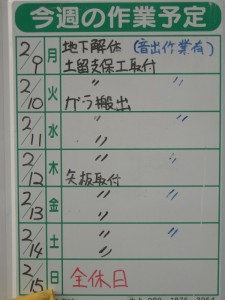 今週の作業予定
2/9 月 地下解体 (音出作業有)
土留支保工取付
2/10 火 〃 〃
ガラ搬出
2/11 水 〃 〃
〃
2/12 木 〃 〃
矢板取付
2/13 金 〃 〃
〃
2/14 土 〃 〃
〃
2/15 日 全休日